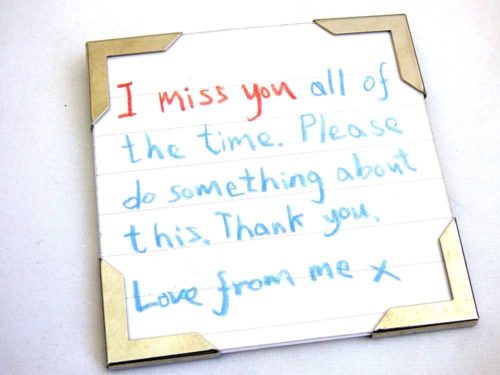 I miss you all of
the time. Please
do something about
this. Thank you.
Love from me x